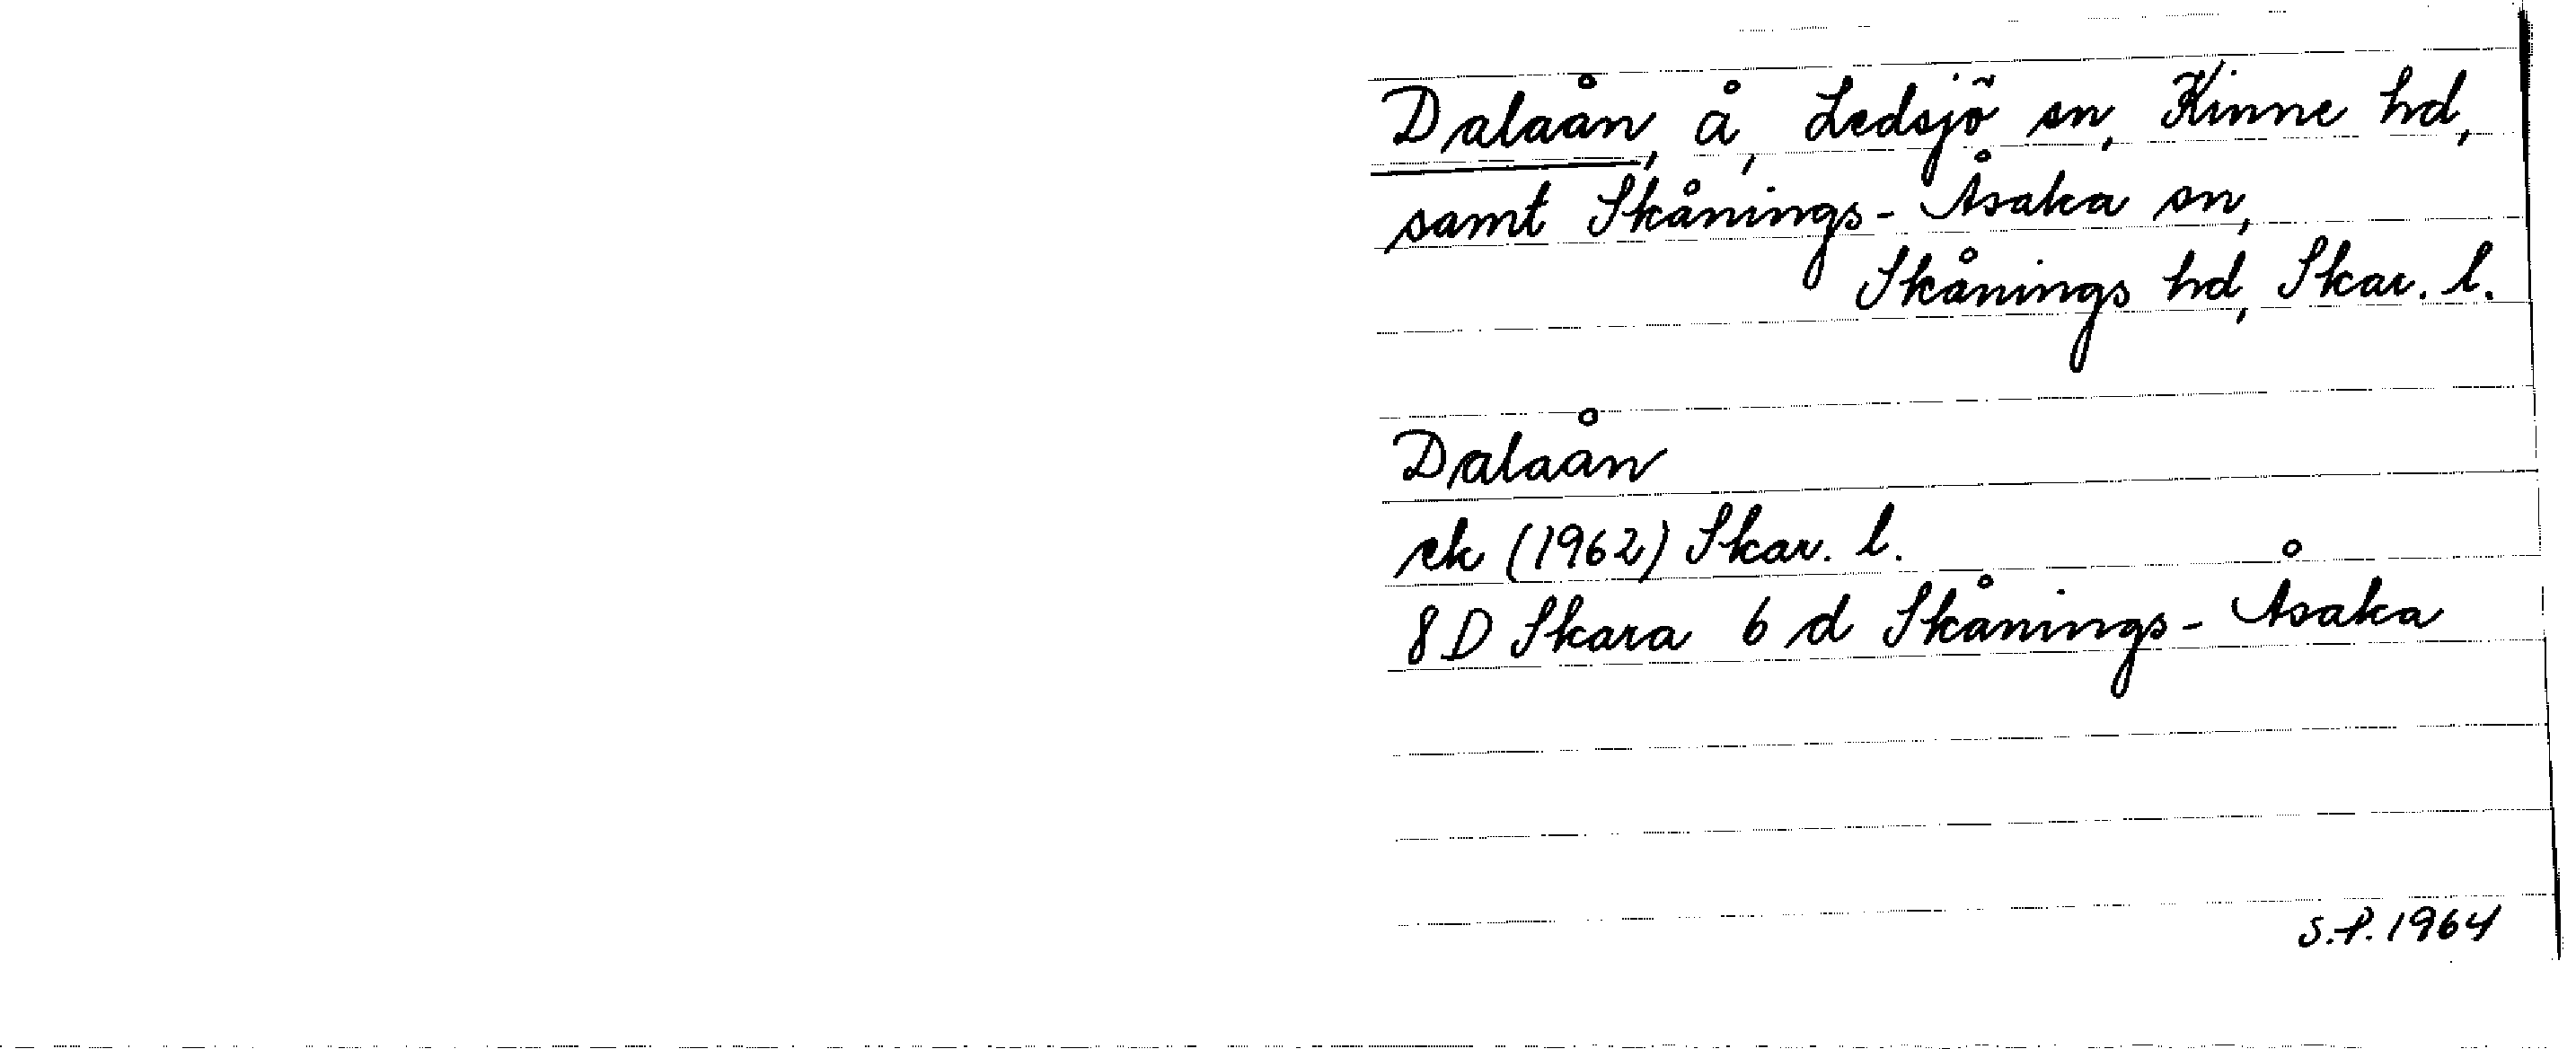 Dalaån, å, Ledsjö sn, Kinne hd,
samt Skånings-Åsaka sn,
Skånings hd, Skar. l.
Dalaån
ek (1962) Skar. l.
8D Skara 6 d Skånings-Åsaka
S.P. 1964